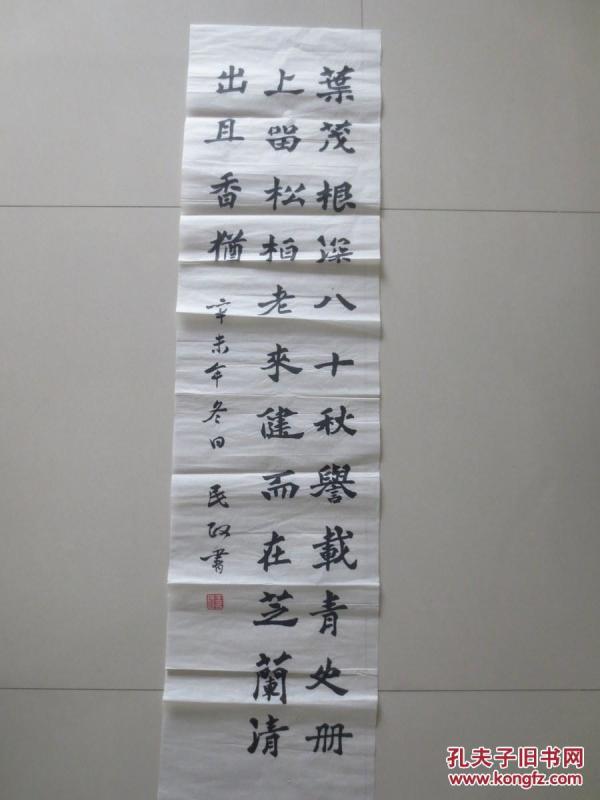 葉茂根深八十秋譽載青史册
上留松柏老來健而在芝蘭清
出且香猶
辛未年冬日 民政書
孔夫子旧书网
www.kongfz.com